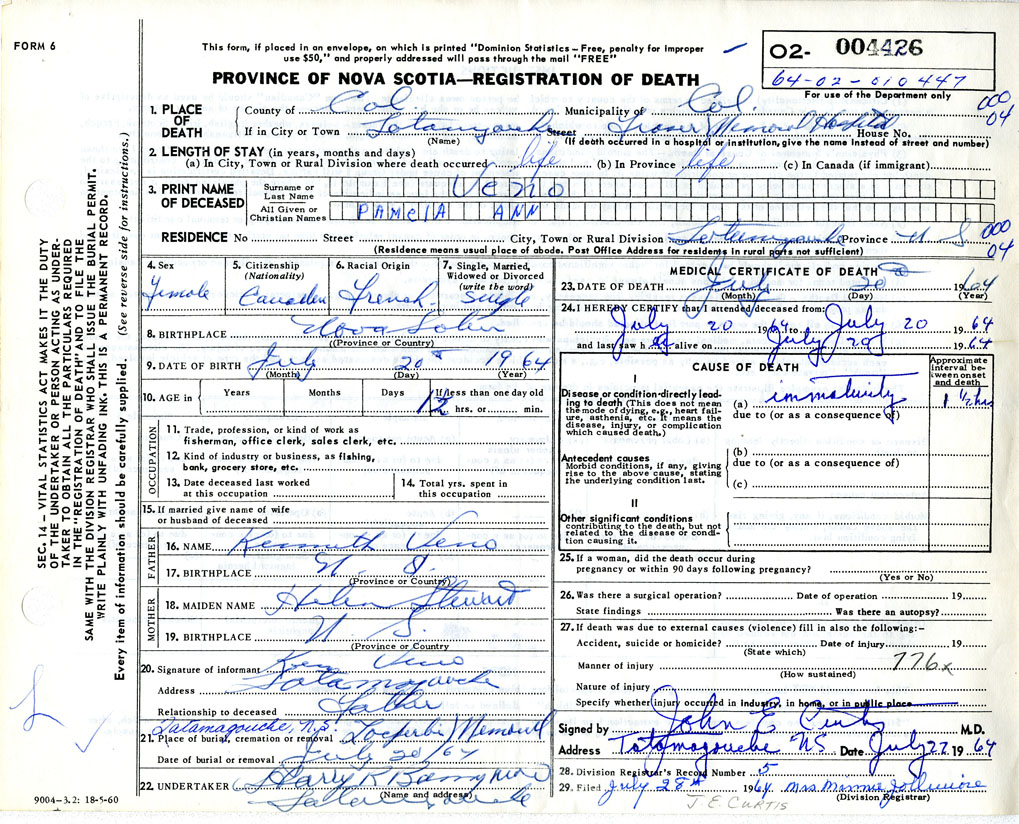 FORM 6
This form, if placed in an envelope, on which is printed "Dominion Statistics – Free, penalty for improper
use $50," and properly addressed will pass through the mail "FREE"
O2- 004426
64-02-010447
For use of the Department only
PROVINCE OF NOVA SCOTIA—REGISTRATION OF DEATH
000
04
1. PLACE OF DEATH
County of Col. Municipality of Col.
If in City or Town Tatamagouche Street Fraser Memorial Hospital House No.
(Name) (If death occurred in a hospital or institution, give name instead of street and number)
2. LENGTH OF STAY (in years, months and days)
(a) In City, Town or Rural Division where death occurred life (b) In Province life (c) In Canada (if immigrant)
3. PRINT NAME OF DECEASED
Surname or Last Name Veno
All Given or Christian Names PAMelA ANN
RESIDENCE No Street City, Town or Rural Division Tatamagouche Province N S
000
04
(Residence means usual place of abode. Post Office Address for residents in rural parts not sufficient)
4. Sex
Female
5. Citizenship (Nationality)
Canadian
6. Racial Origin
French
7. Single, Married, Widowed or Divorced (write the word)
Single
8. BIRTHPLACE Nova Scotia
(Province or Country)
9. DATE OF BIRTH July 20th 1964
(Month) (Day) (Year)
10. AGE in Years Months Days If less than one day old
hrs. or min.
OCCUPATION
11. Trade, profession, or kind of work as
fisherman, office clerk, sales clerk, etc.
12. Kind of industry or business, as fishing,
bank, grocery store, etc.
13. Date deceased last worked
at this occupation
14. Total yrs. spent in
this occupation
15. If married give name of wife
or husband of deceased
FATHER
16. NAME Kenneth Veno
17. BIRTHPLACE N. S.
(Province or Country)
MOTHER
18. MAIDEN NAME Helen Stewart
19. BIRTHPLACE N. S.
(Province or Country
20. Signature of informant Ken Veno
Address Tatamagouche
Relationship to deceased Father
Tatamagouche, N.S.
21. Place of burial, cremation or removal Memorial
Date of burial or removal July 20/64
22. UNDERTAKER Harry R
(Name and address)
Tatamagouche
9004-3.2: 18-5-60
MEDICAL CERTIFICATE OF DEATH
23. DATE OF DEATH July 20 1964
(Month) (Day) (Year)
24. I HEREBY CERTIFY that I attended deceased from:
July 20 1964 to July 20 1964
and last saw h alive on July 20 1964
CAUSE OF DEATH
Approximate interval between onset and death
I
Disease or condition directly leading to death (This does not mean the mode of dying, e.g., heart failure, asthenia, etc. It means the disease, injury, or complication which caused death.)
(a) immaturity 1 1/2 hrs
due to (or as a consequence of)
Antecedent causes
Morbid conditions, if any, giving rise to the above cause, stating the underlying condition last.
(b)
due to (or as a consequence of)
(c)
II
Other significant conditions
contributing to the death, but not related to the disease or condition causing it.
25. If a woman, did the death occur during
pregnancy or within 90 days following pregnancy?
(Yes or No)
26. Was there a surgical operation? Date of operation 19
State findings Was there an autopsy?
27. If death was due to external causes (violence) fill in also the following:–
Accident, suicide or homicide? Date of injury 19
(State which)
Manner of injury 776x
(How sustained)
Nature of injury
Specify whether injury occurred in industry, in home, or in public place
Signed by John E Curtis M.D.
Address Tatamagouche NS Date July 27 1964
28. Division Registrar's Record Number 5
29. Filed July 28th 1964 Mrs Minnie Jollimore
(Division Registrar)
J E. CURTIS
SEC. 14 – VITAL STATISTICS ACT MAKES IT THE DUTY
OF THE UNDERTAKER OR PERSON ACTING AS UNDER-
TAKER TO OBTAIN ALL THE PARTICULARS REQUIRED
IN THE "REGISTRATION OF DEATH" AND TO FILE THE
SAME WITH THE DIVISION REGISTRAR WHO SHALL ISSUE THE BURIAL PERMIT.
WRITE PLAINLY WITH UNFADING INK. THIS IS A PERMANENT RECORD.
Every item of information should be carefully supplied. (See reverse side for instructions.)